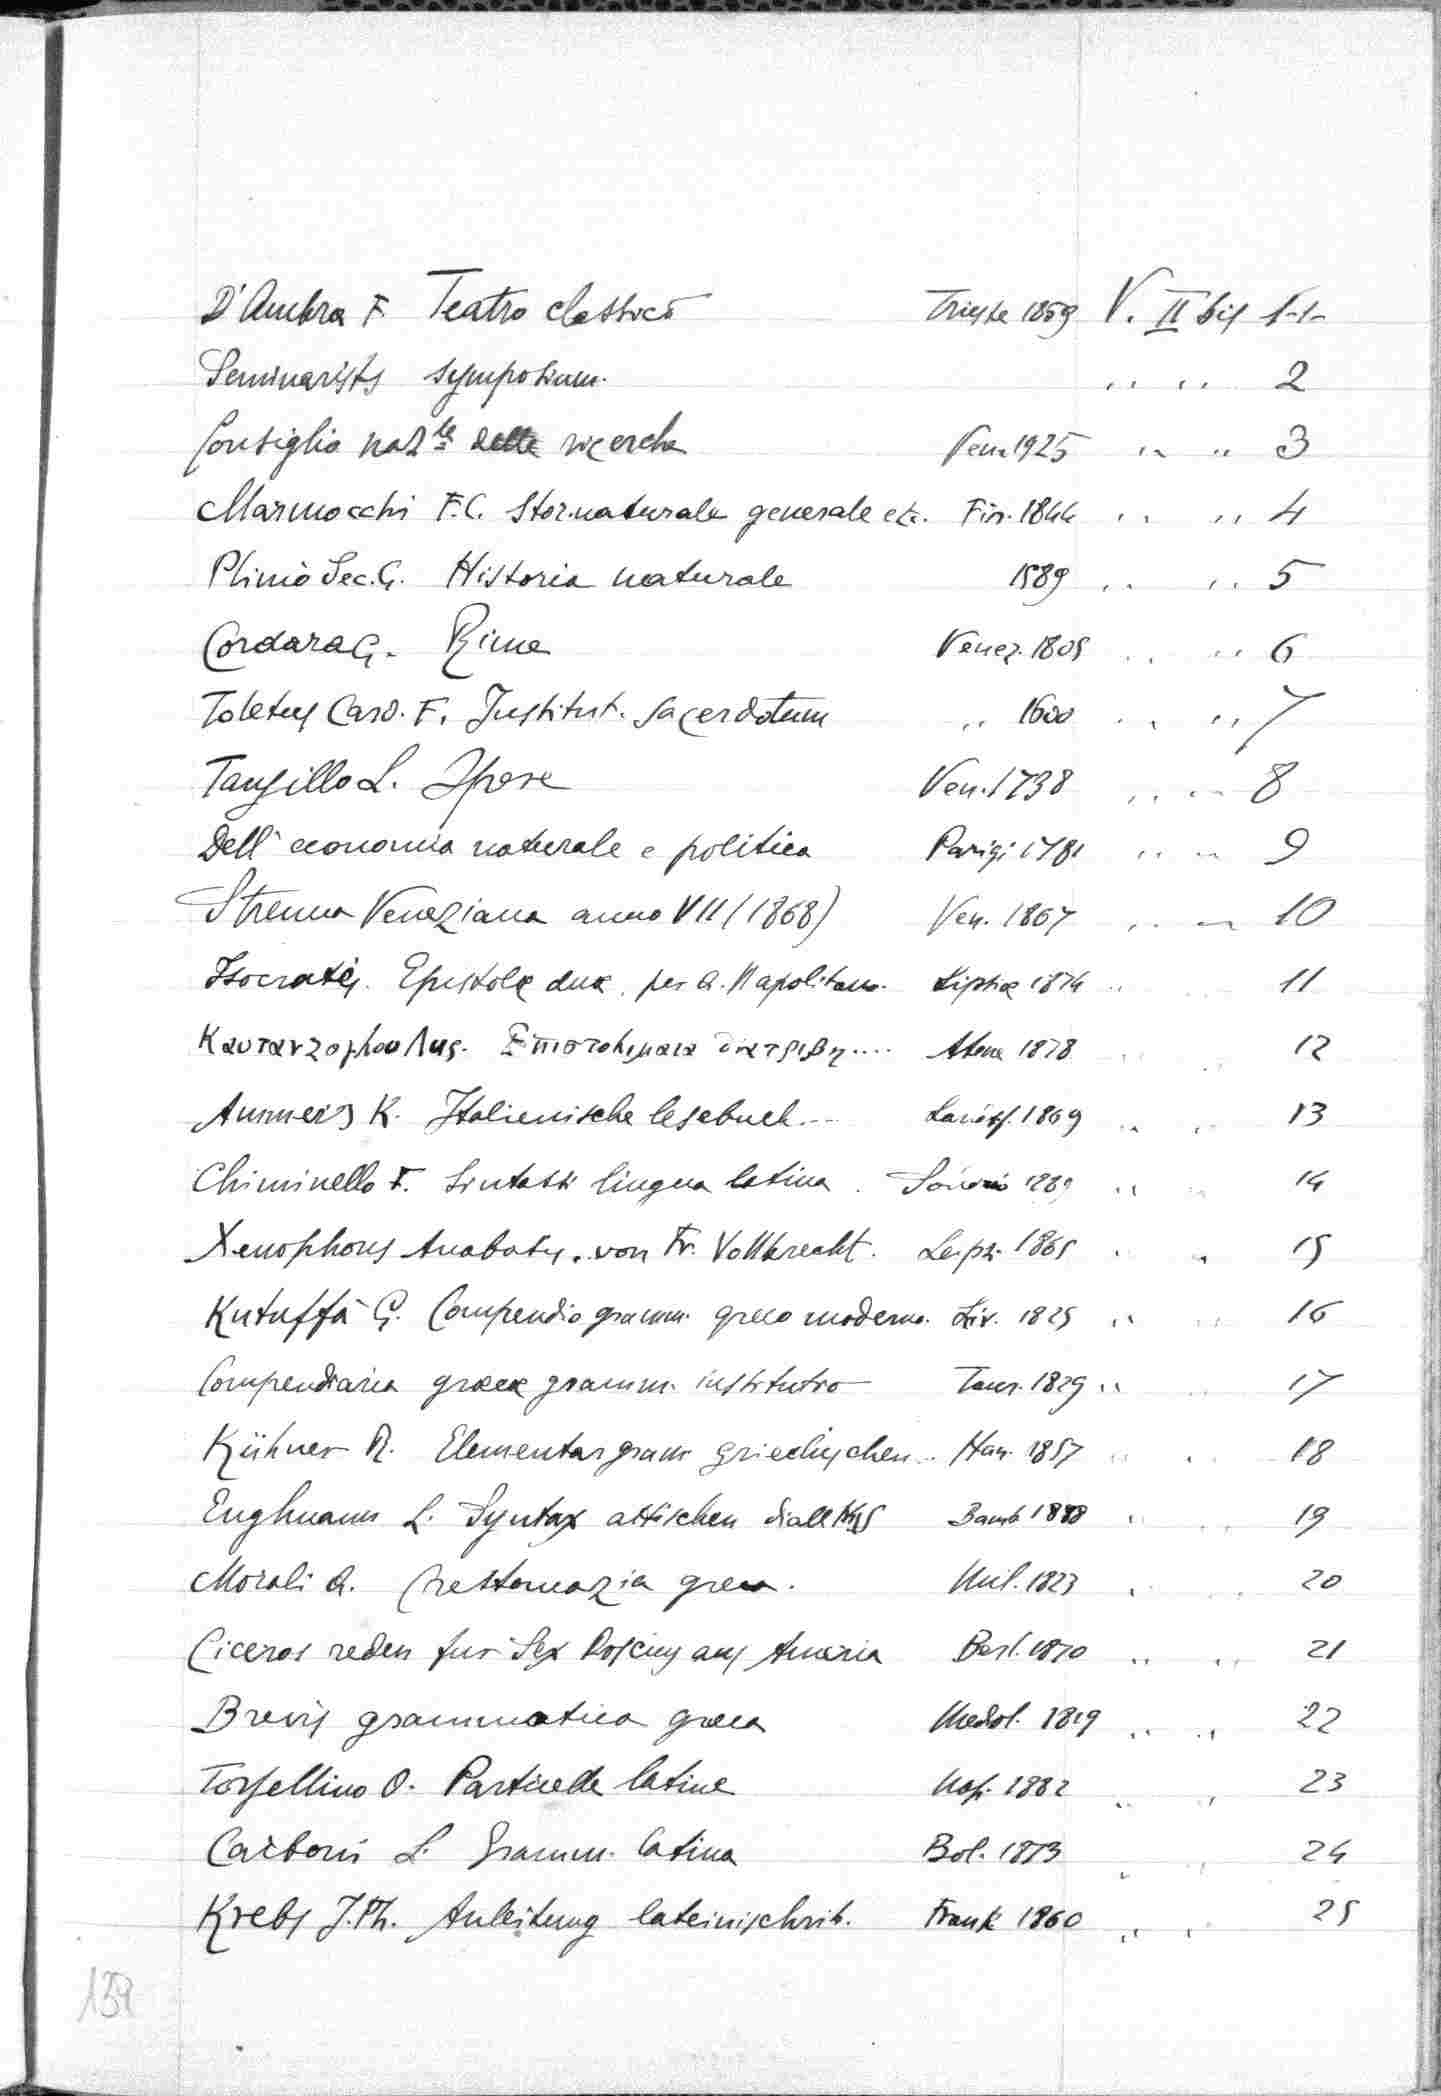 D'Ambra F. Teatro classico Trieste 1859 V. II bis 1-1-
Seminarists symposium. " " 2
Consiglio naz.le delle ricerche Ven. 1925 " " 3
Marmocchi F.C. Stor. naturale generale etc. Fir. 1844 " " 4
Plinio Sec. G. Historia naturale 1589 " " 5
Cordara G. Rime Venez. 1805 " " 6
Toletus Card. F. Institut. Sacerdotum " 1600 " " 7
Tansillo L. Opere Ven. 1738 " " 8
Dell' economia naturale e politica Parigi 1781 " " 9
Strenna Veneziana anno VII (1868) Ven. 1867 " " 10
Isocratis. Epistolæ duæ. per A. Napolitano. Lipsiæ 1874 " 11
διατριβη.... Atene 1878 " " 12
K. Italienische lesebuch... 1869 " " 13
Chiminello F. Sintassi lingua latina. 1889 " " 14
Xenophons Anabasis. von Fr. Vollbrecht. Leipz. 1865 " " 15
Kutuffà G. Compendio gramm. greco moderno. Liv. 1825 " " 16
Compendiaria græcæ gramm. institutio Taur. 1829 " " 17
Kühner R. Elementargram griechischen.. Han. 1857 " " 18
Englmann L. Syntax attischen Bamb 1888 " " 19
Morali A. Crestomazia greca. Mil. 1823 " " 20
Ciceros reden fur Sex Roscius aus Ameria Berl. 1870 " " 21
Brevis grammatica græca Mediol. 1819 " " 22
Torsellino O. Particelle latine Nap. 1882 " " 23
L. Gramm. latina Bol. 1873 " " 24
Krebs J. Ph. Anleitung lateinischrib. Frank 1860 " " 25
139